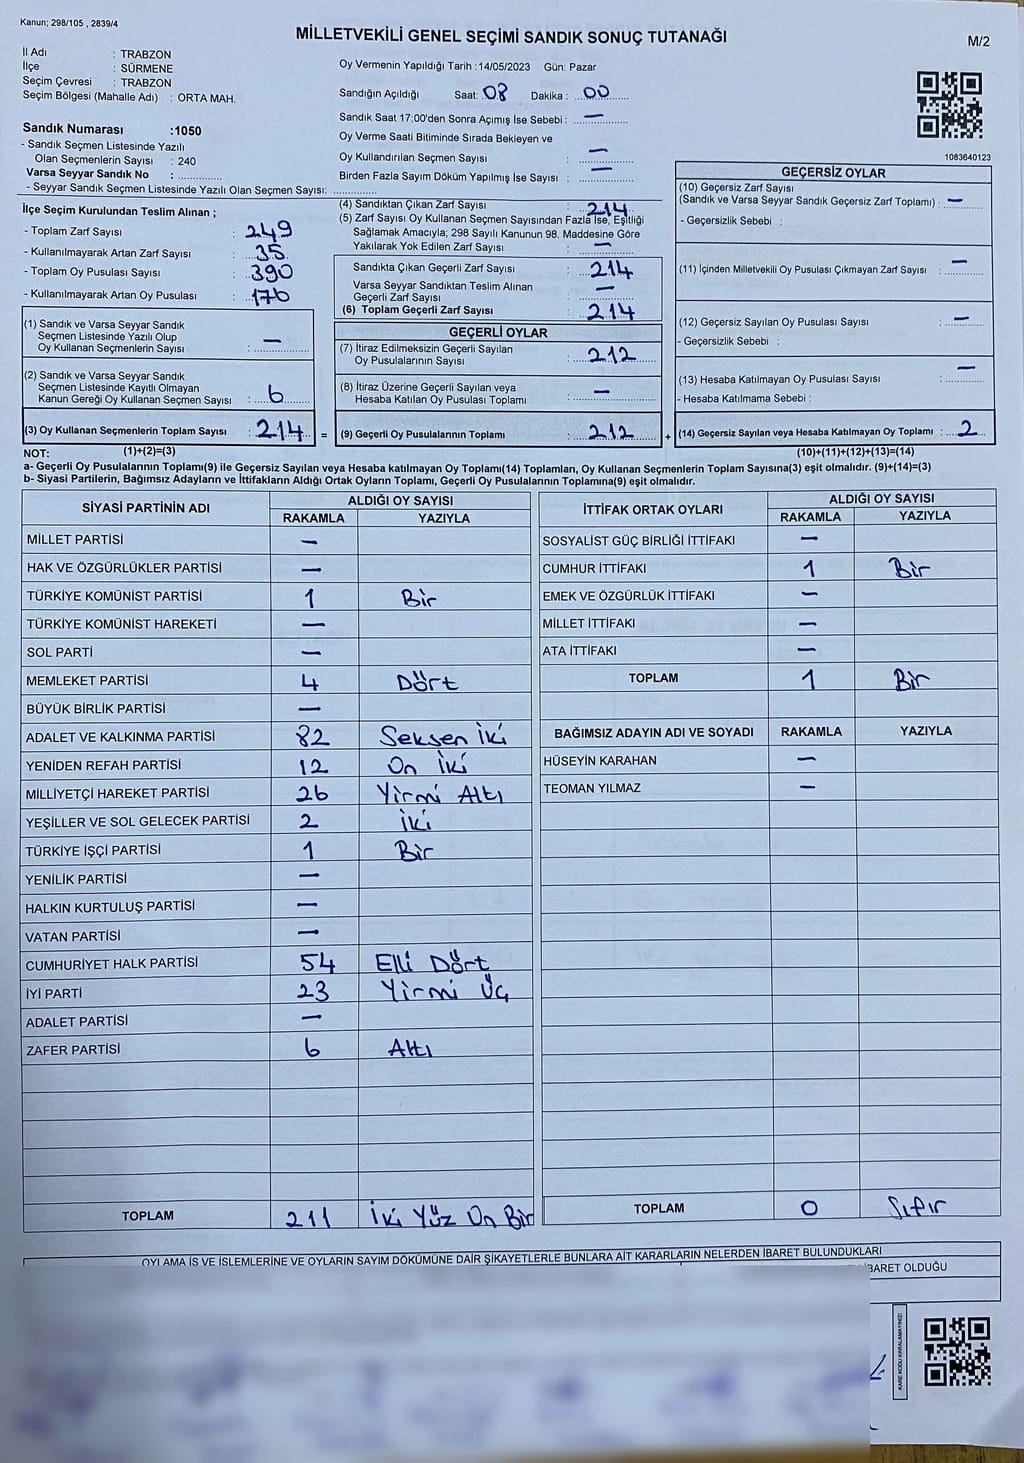 Kanun; 298/105 , 2839/4
MİLLETVEKİLİ GENEL SEÇİMİ SANDIK SONUÇ TUTANAĞI
M/2
İl Adı : TRABZON
İlçe : SÜRMENE
Seçim Çevresi : TRABZON
Seçim Bölgesi (Mahalle Adı) : ORTA MAH.
Sandık Numarası :1050
- Sandık Seçmen Listesinde Yazılı
Olan Seçmenlerin Sayısı : 240
Varsa Seyyar Sandık No :
- Seyyar Sandık Seçmen Listesinde Yazılı Olan Seçmen Sayısı:
Oy Vermenin Yapıldığı Tarih :14/05/2023 Gün: Pazar
Sandığın Açıldığı Saat: 08 Dakika : 00
Sandık Saat 17:00'den Sonra Açımış İse Sebebi : —
Oy Verme Saati Bitiminde Sırada Bekleyen ve
Oy Kullandırılan Seçmen Sayısı : —
Birden Fazla Sayım Döküm Yapılmış İse Sayısı : —
1083640123
İlçe Seçim Kurulundan Teslim Alınan ;
- Toplam Zarf Sayısı : 249
- Kullanılmayarak Artan Zarf Sayısı : 35
- Toplam Oy Pusulası Sayısı : 390
- Kullanılmayarak Artan Oy Pusulası : 176
(1) Sandık ve Varsa Seyyar Sandık
Seçmen Listesinde Yazılı Olup
Oy Kullanan Seçmenlerin Sayısı : —
(2) Sandık ve Varsa Seyyar Sandık
Seçmen Listesinde Kayıtlı Olmayan
Kanun Gereği Oy Kullanan Seçmen Sayısı : 6
(3) Oy Kullanan Seçmenlerin Toplam Sayısı : 214 =
(1)+(2)=(3)
(4) Sandıktan Çıkan Zarf Sayısı : 214
(5) Zarf Sayısı Oy Kullanan Seçmen Sayısından Fazla İse, Eşitliği
Sağlamak Amacıyla; 298 Sayılı Kanunun 98. Maddesine Göre
Yakılarak Yok Edilen Zarf Sayısı : —
Sandıkta Çıkan Geçerli Zarf Sayısı : 214
Varsa Seyyar Sandıktan Teslim Alınan
Geçerli Zarf Sayısı : —
(6) Toplam Geçerli Zarf Sayısı : 214
GEÇERLİ OYLAR
(7) İtiraz Edilmeksizin Geçerli Sayılan
Oy Pusulalarının Sayısı : 212
(8) İtiraz Üzerine Geçerli Sayılan veya
Hesaba Katılan Oy Pusulası Toplamı : —
(9) Geçerli Oy Pusulalarının Toplamı : 212 +
GEÇERSİZ OYLAR
(10) Geçersiz Zarf Sayısı
(Sandık ve Varsa Seyyar Sandık Geçersiz Zarf Toplamı) : —
- Geçersizlik Sebebi :
(11) İçinden Milletvekili Oy Pusulası Çıkmayan Zarf Sayısı : —
(12) Geçersiz Sayılan Oy Pusulası Sayısı : —
- Geçersizlik Sebebi :
(13) Hesaba Katılmayan Oy Pusulası Sayısı : —
- Hesaba Katılmama Sebebi :
(14) Geçersiz Sayılan veya Hesaba Katılmayan Oy Toplamı : 2
(10)+(11)+(12)+(13)=(14)
NOT:
a- Geçerli Oy Pusulalarının Toplamı(9) ile Geçersiz Sayılan veya Hesaba katılmayan Oy Toplamı(14) Toplamları, Oy Kullanan Seçmenlerin Toplam Sayısına(3) eşit olmalıdır. (9)+(14)=(3)
b- Siyasi Partilerin, Bağımsız Adayların ve İttifakların Aldığı Ortak Oyların Toplamı, Geçerli Oy Pusulalarının Toplamına(9) eşit olmalıdır.
SİYASİ PARTİNİN ADI
ALDIĞI OY SAYISI
RAKAMLA YAZIYLA
MİLLET PARTİSİ —
HAK VE ÖZGÜRLÜKLER PARTİSİ —
TÜRKİYE KOMÜNİST PARTİSİ 1 Bir
TÜRKİYE KOMÜNİST HAREKETİ —
SOL PARTİ —
MEMLEKET PARTİSİ 4 Dört
BÜYÜK BİRLİK PARTİSİ —
ADALET VE KALKINMA PARTİSİ 82 Seksen İki
YENİDEN REFAH PARTİSİ 12 On İki
MİLLİYETÇİ HAREKET PARTİSİ 26 Yirmi Altı
YEŞİLLER VE SOL GELECEK PARTİSİ 2 İki
TÜRKİYE İŞÇİ PARTİSİ 1 Bir
YENİLİK PARTİSİ —
HALKIN KURTULUŞ PARTİSİ —
VATAN PARTİSİ —
CUMHURİYET HALK PARTİSİ 54 Elli Dört
İYİ PARTİ 23 Yirmi Üç
ADALET PARTİSİ —
ZAFER PARTİSİ 6 Altı
TOPLAM 211 İki Yüz On Bir
İTTİFAK ORTAK OYLARI
ALDIĞI OY SAYISI
RAKAMLA YAZIYLA
SOSYALİST GÜÇ BİRLİĞİ İTTİFAKI —
CUMHUR İTTİFAKI 1 Bir
EMEK VE ÖZGÜRLÜK İTTİFAKI —
MİLLET İTTİFAKI —
ATA İTTİFAKI —
TOPLAM 1 Bir
BAĞIMSIZ ADAYIN ADI VE SOYADI RAKAMLA YAZIYLA
HÜSEYİN KARAHAN —
TEOMAN YILMAZ —
TOPLAM 0 Sıfır
OYLAMA İŞ VE İŞLEMLERİNE VE OYLARIN SAYIM DÖKÜMÜNE DAİR ŞİKAYETLERLE BUNLARA AİT KARARLARIN NELERDEN İBARET BULUNDUKLARI
İBARET OLDUĞU
KARE KODU KARALAMAYINIZ!